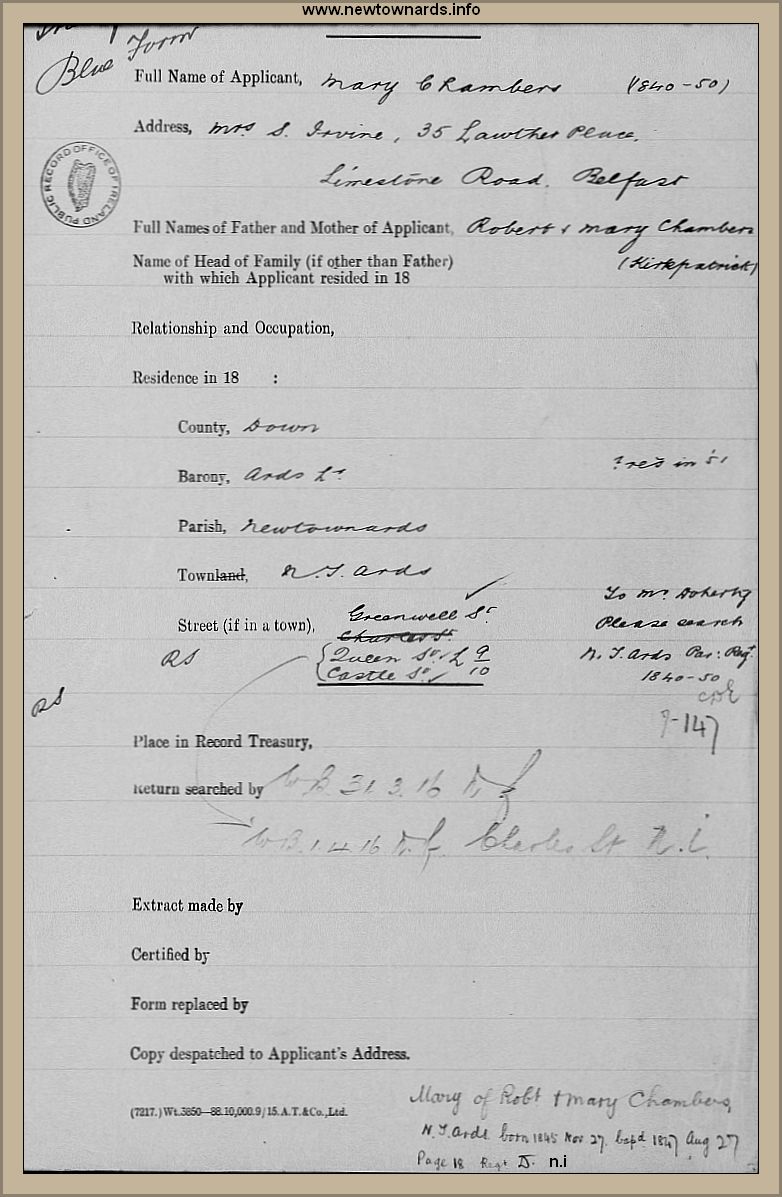 www.newtownards.info
Blue Form
Full Name of Applicant, Mary Chambers (1840-50)
Address, Mrs S. Irvine, 35 Lawther Place,
Limestone Road, Belfast
PUBLIC RECORD OFFICE OF IRELAND
Full Names of Father and Mother of Applicant, Robert & Mary Chambers
Name of Head of Family (if other than Father) (Kirkpatrick)
with which Applicant resided in 18
Relationship and Occupation,
Residence in 18 :
County, Down
? res in '51
Barony, Ards Lr
Parish, Newtownards
Townland, N. T. Ards
To Mr Doherty
Greenwell St.
Street (if in a town), Please search
Charles St.
RS Queen St. L 9/10 N. T. Ards Par: Regr.
Castle St. 1840-50
RS
147
Place in Record Treasury,
Return searched by WB. 31. 3. 16 N.f
WB. 1. 4. 16 N.f. Charles St N.i.
Extract made by
Certified by
Form replaced by
Copy despatched to Applicant's Address.
Mary of Robt & Mary Chambers,
(7217.) Wt. 3850—88. 10,000. 9/15. A.T.&Co., Ltd.
N. T. Ards. born 1845 Nov 27. bapd 1847 Aug 27
Page 18 Regr D. n.i